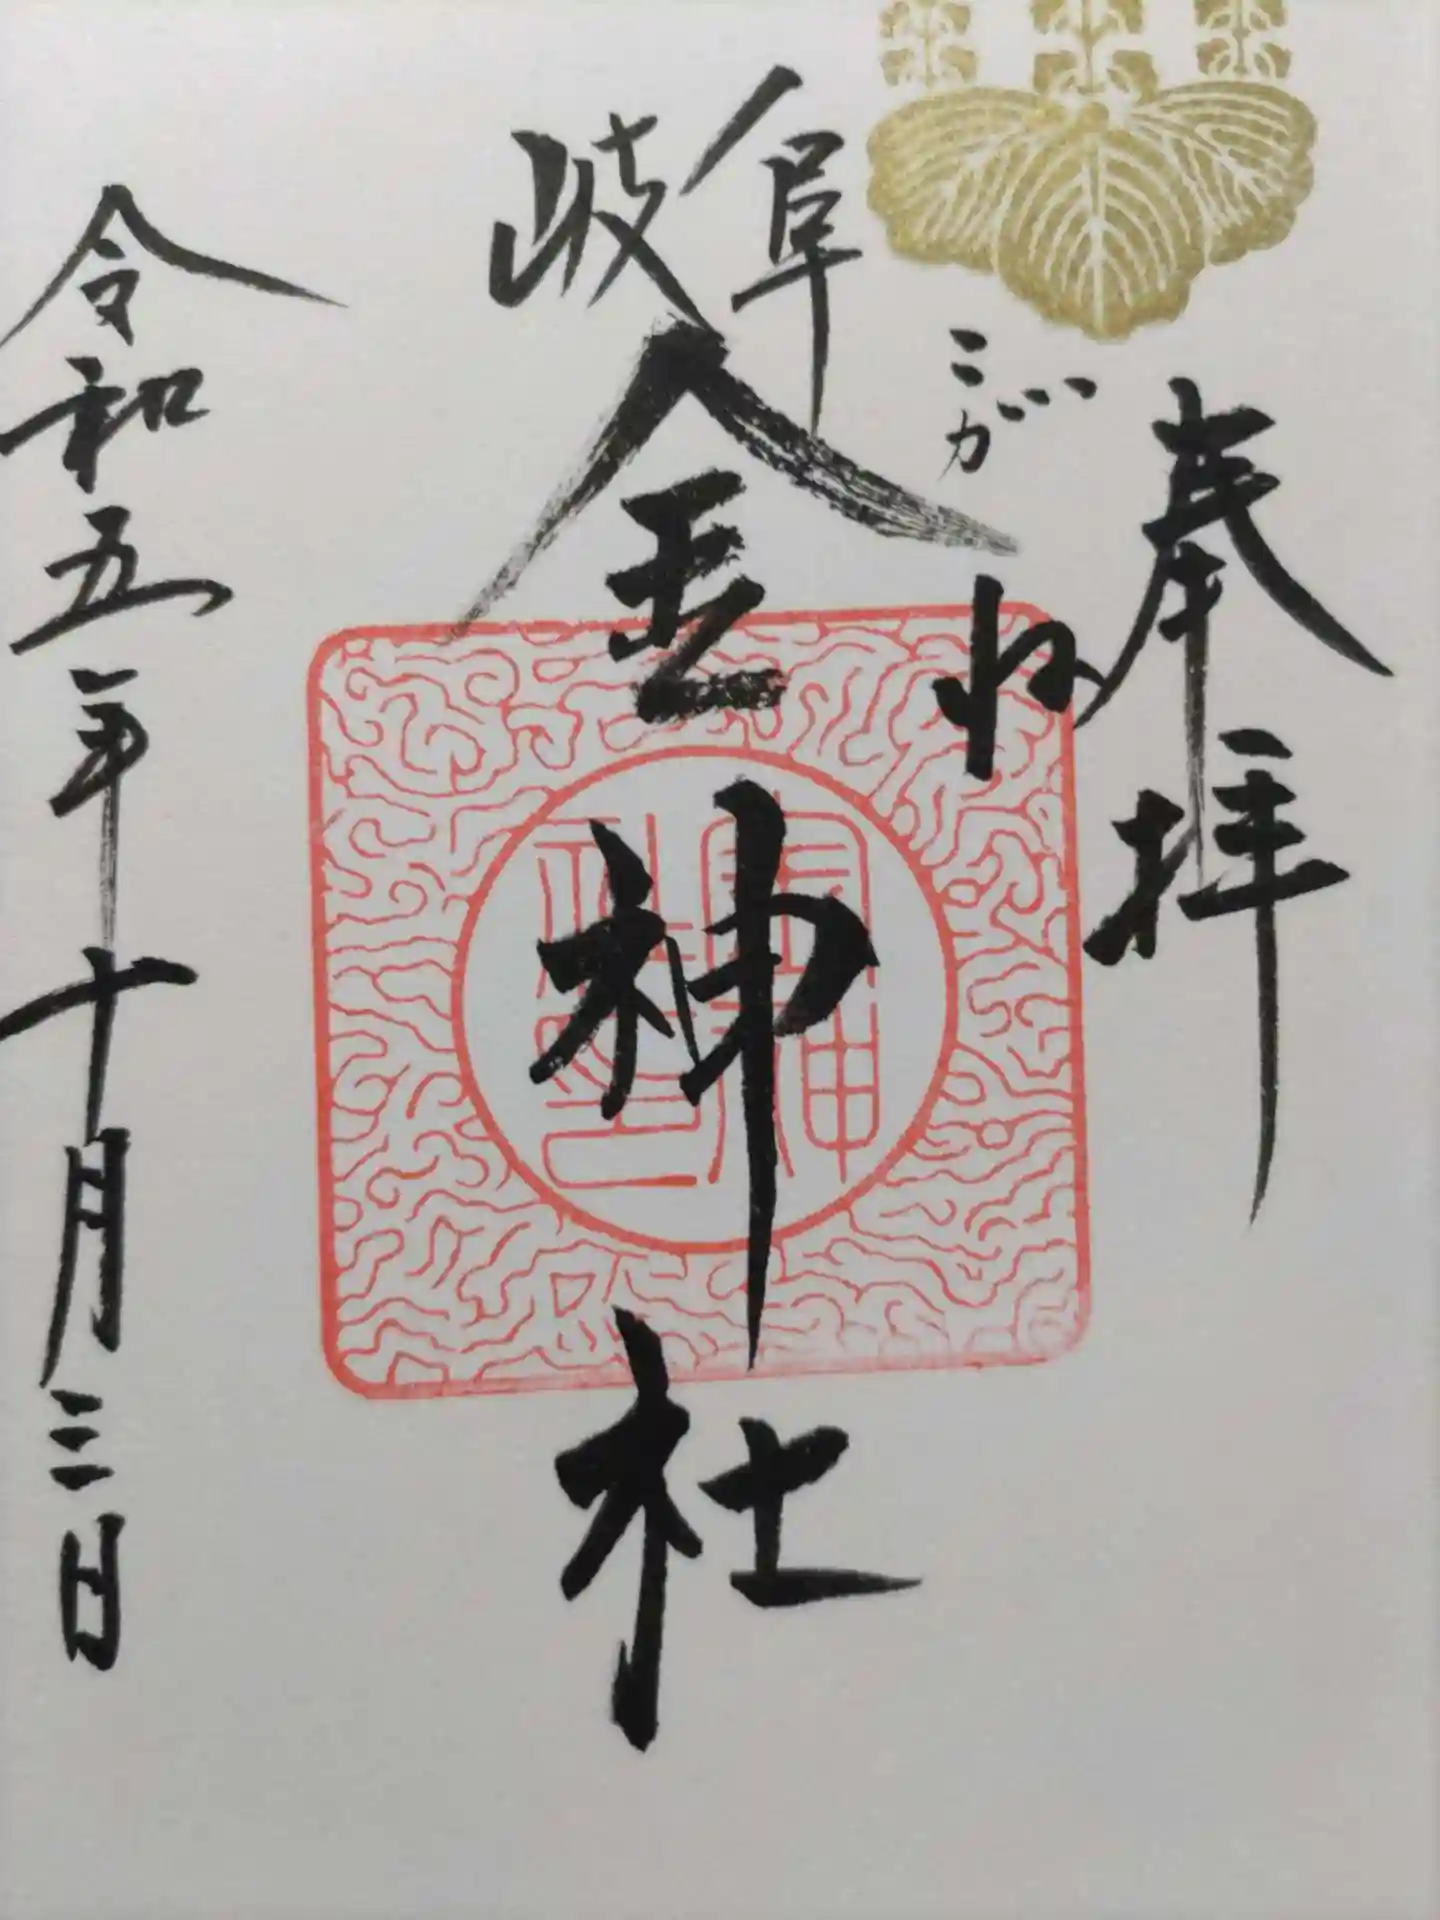 奉拝
こがね
岐阜
金神社
金神社印
令和五年十月三日